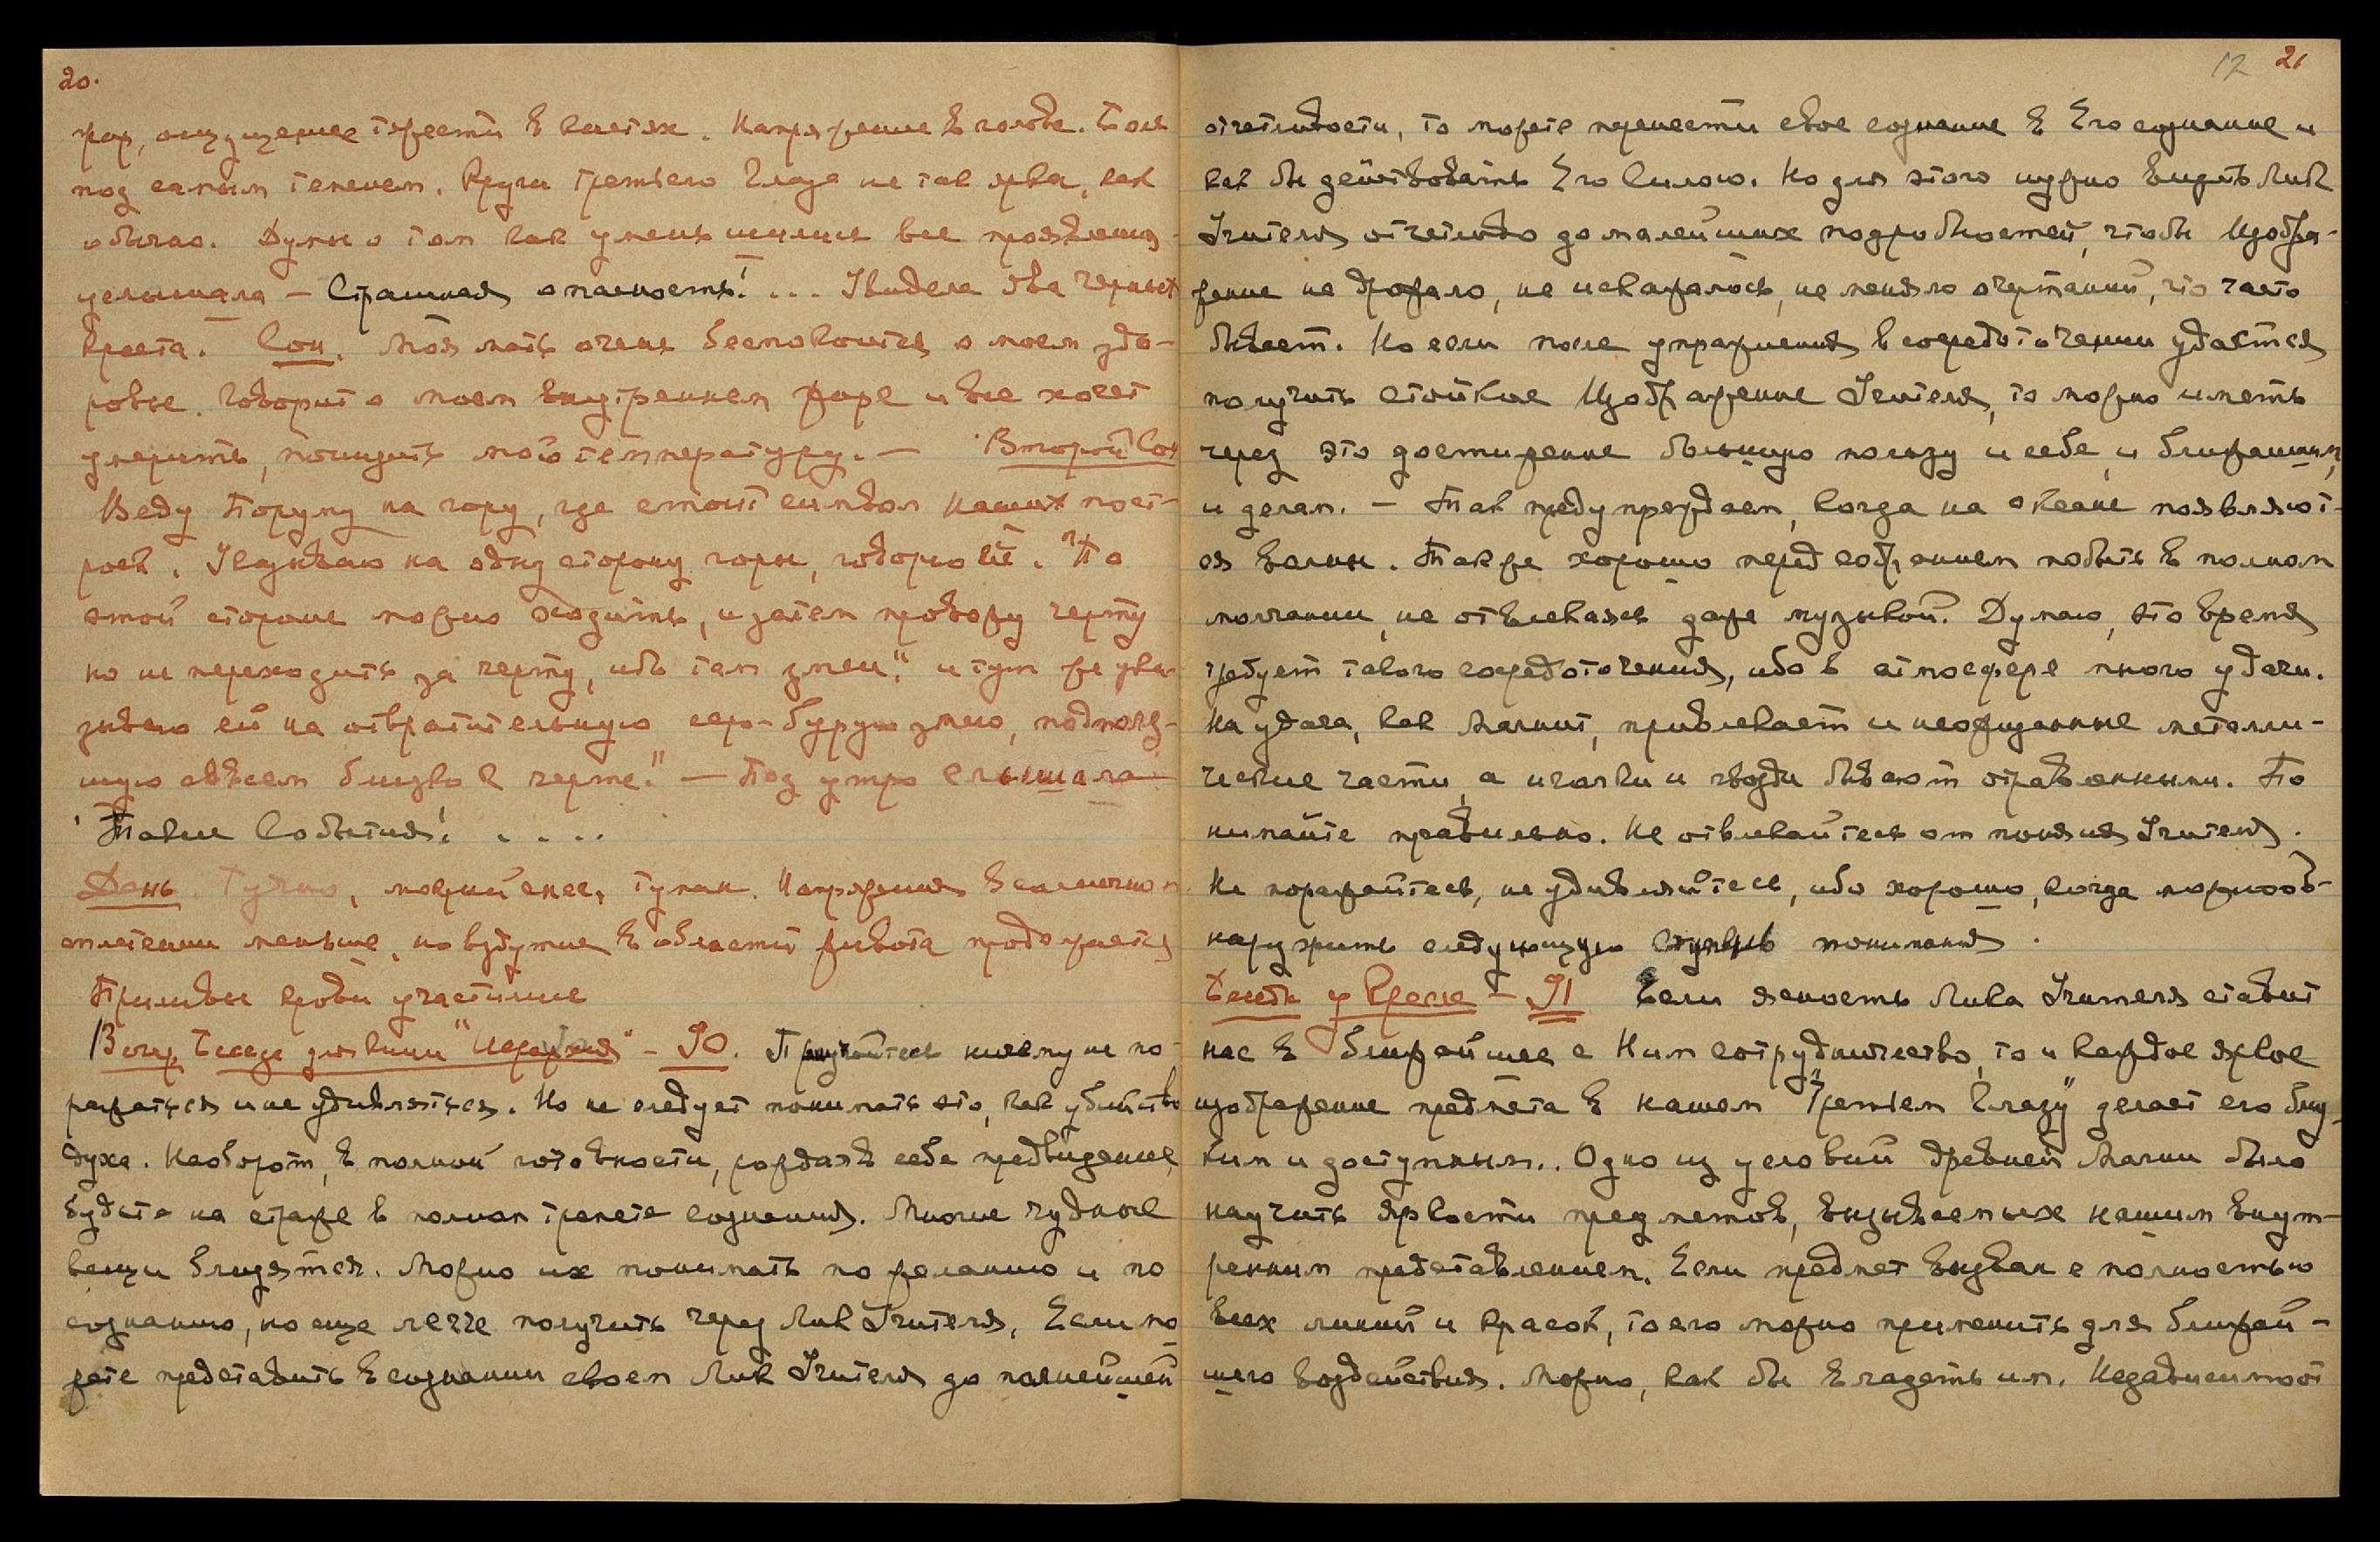 20.
жар, ощущение тяжести в кистях. Напряжение в голове. Боли
под самым теменем. Круги третьего глаза не так ярки, как
обычно. Думы о том как уменьшились все проявления
услышала – Страшная опасность! ... Увидела два черных
креста. Сон. Моя мать очень беспокоится о моем здо-
ровье. Говорит о моем внутреннем жаре и все хочет
умерить, понизить мою температуру. – Второй Сон
Веду Поруму на гору, где стоит символ наших пост-
роек. Указываю на одну сторону горы, говорю ей. "По
этой стороне можно сходить, и затем провожу черту
но не переходить за черту, ибо там змеи." и тут же ука-
зываю ей на отвратительную серо-бурую змею, подполз-
шую совсем близко к черте." – Под утро слышала
Такие События! . . . .
День. Тучно, мокрый снег, туман. Напряжения в солнечном
сплетении меньше, но вздутие в области живота продолжается
Приливы крови участились
Вечер Беседа для книги "Иерархия" – 90. Приучайтесь ничему не по-
ражаться и не удивляться. Но не следует понимать это, как убийство
духа. Наоборот, в полной готовности, рождая в себе предвидение,
будьте на страже в полном трепете сознания. Многие чудные
вещи близятся. Можно их понимать по желанию и по
сознанию, но еще легче получить через Лик Учителя. Если мо
жете представить в сознании своем Лик Учителя до полнейшей
12 21
отчетливости, то можете перенести свое сознание в Его сознание и
как бы действовать Его Силою. Но для этого нужно видеть Лик
Учителя отчетливо до малейших подробностей, чтобы Изобра-
жение не дрожало, не искажалось, не меняло очертаний, что часто
бывает. Но если после упражнения в сосредоточении удается
получить стойкое Изображение Учителя, то можно иметь
через это достижение большую пользу и себе, и ближним,
и делам. – Так предупреждаем, когда на океане появляют-
ся волны. Также хорошо перед собранием побыть в полном
молчании, не отвлекаясь даже музыкой. Думаю, это время
требует такого сосредоточения, ибо в атмосфере много удачи.
Но удача, как магнит, привлекает и неожиданные металли-
ческие части, а иголки и гвозди бывают отравленными. По
нимайте правильно. Не отвлекайтесь от Учителя.
Не поражайтесь, не удивляйтесь, ибо хорошо, когда можно об-
наружить следующую ступень понимания.
Беседы у Креста – 91 Если ясность Лика Учителя ставит
нас в ближайшее с Ним сотрудничество, то и каждое яркое
изображение предмета в нашем "Третьем Глазу" делает его близ
ким и доступным.. Одно из условий древней Магии было
научить яркости предметов, вызываемых нашим внут-
ренним представлением. Если предмет вызван с полностью
всех линий и красок, то его можно применить для ближай-
шего воздействия. Можно, как бы владеть им. Независимо от